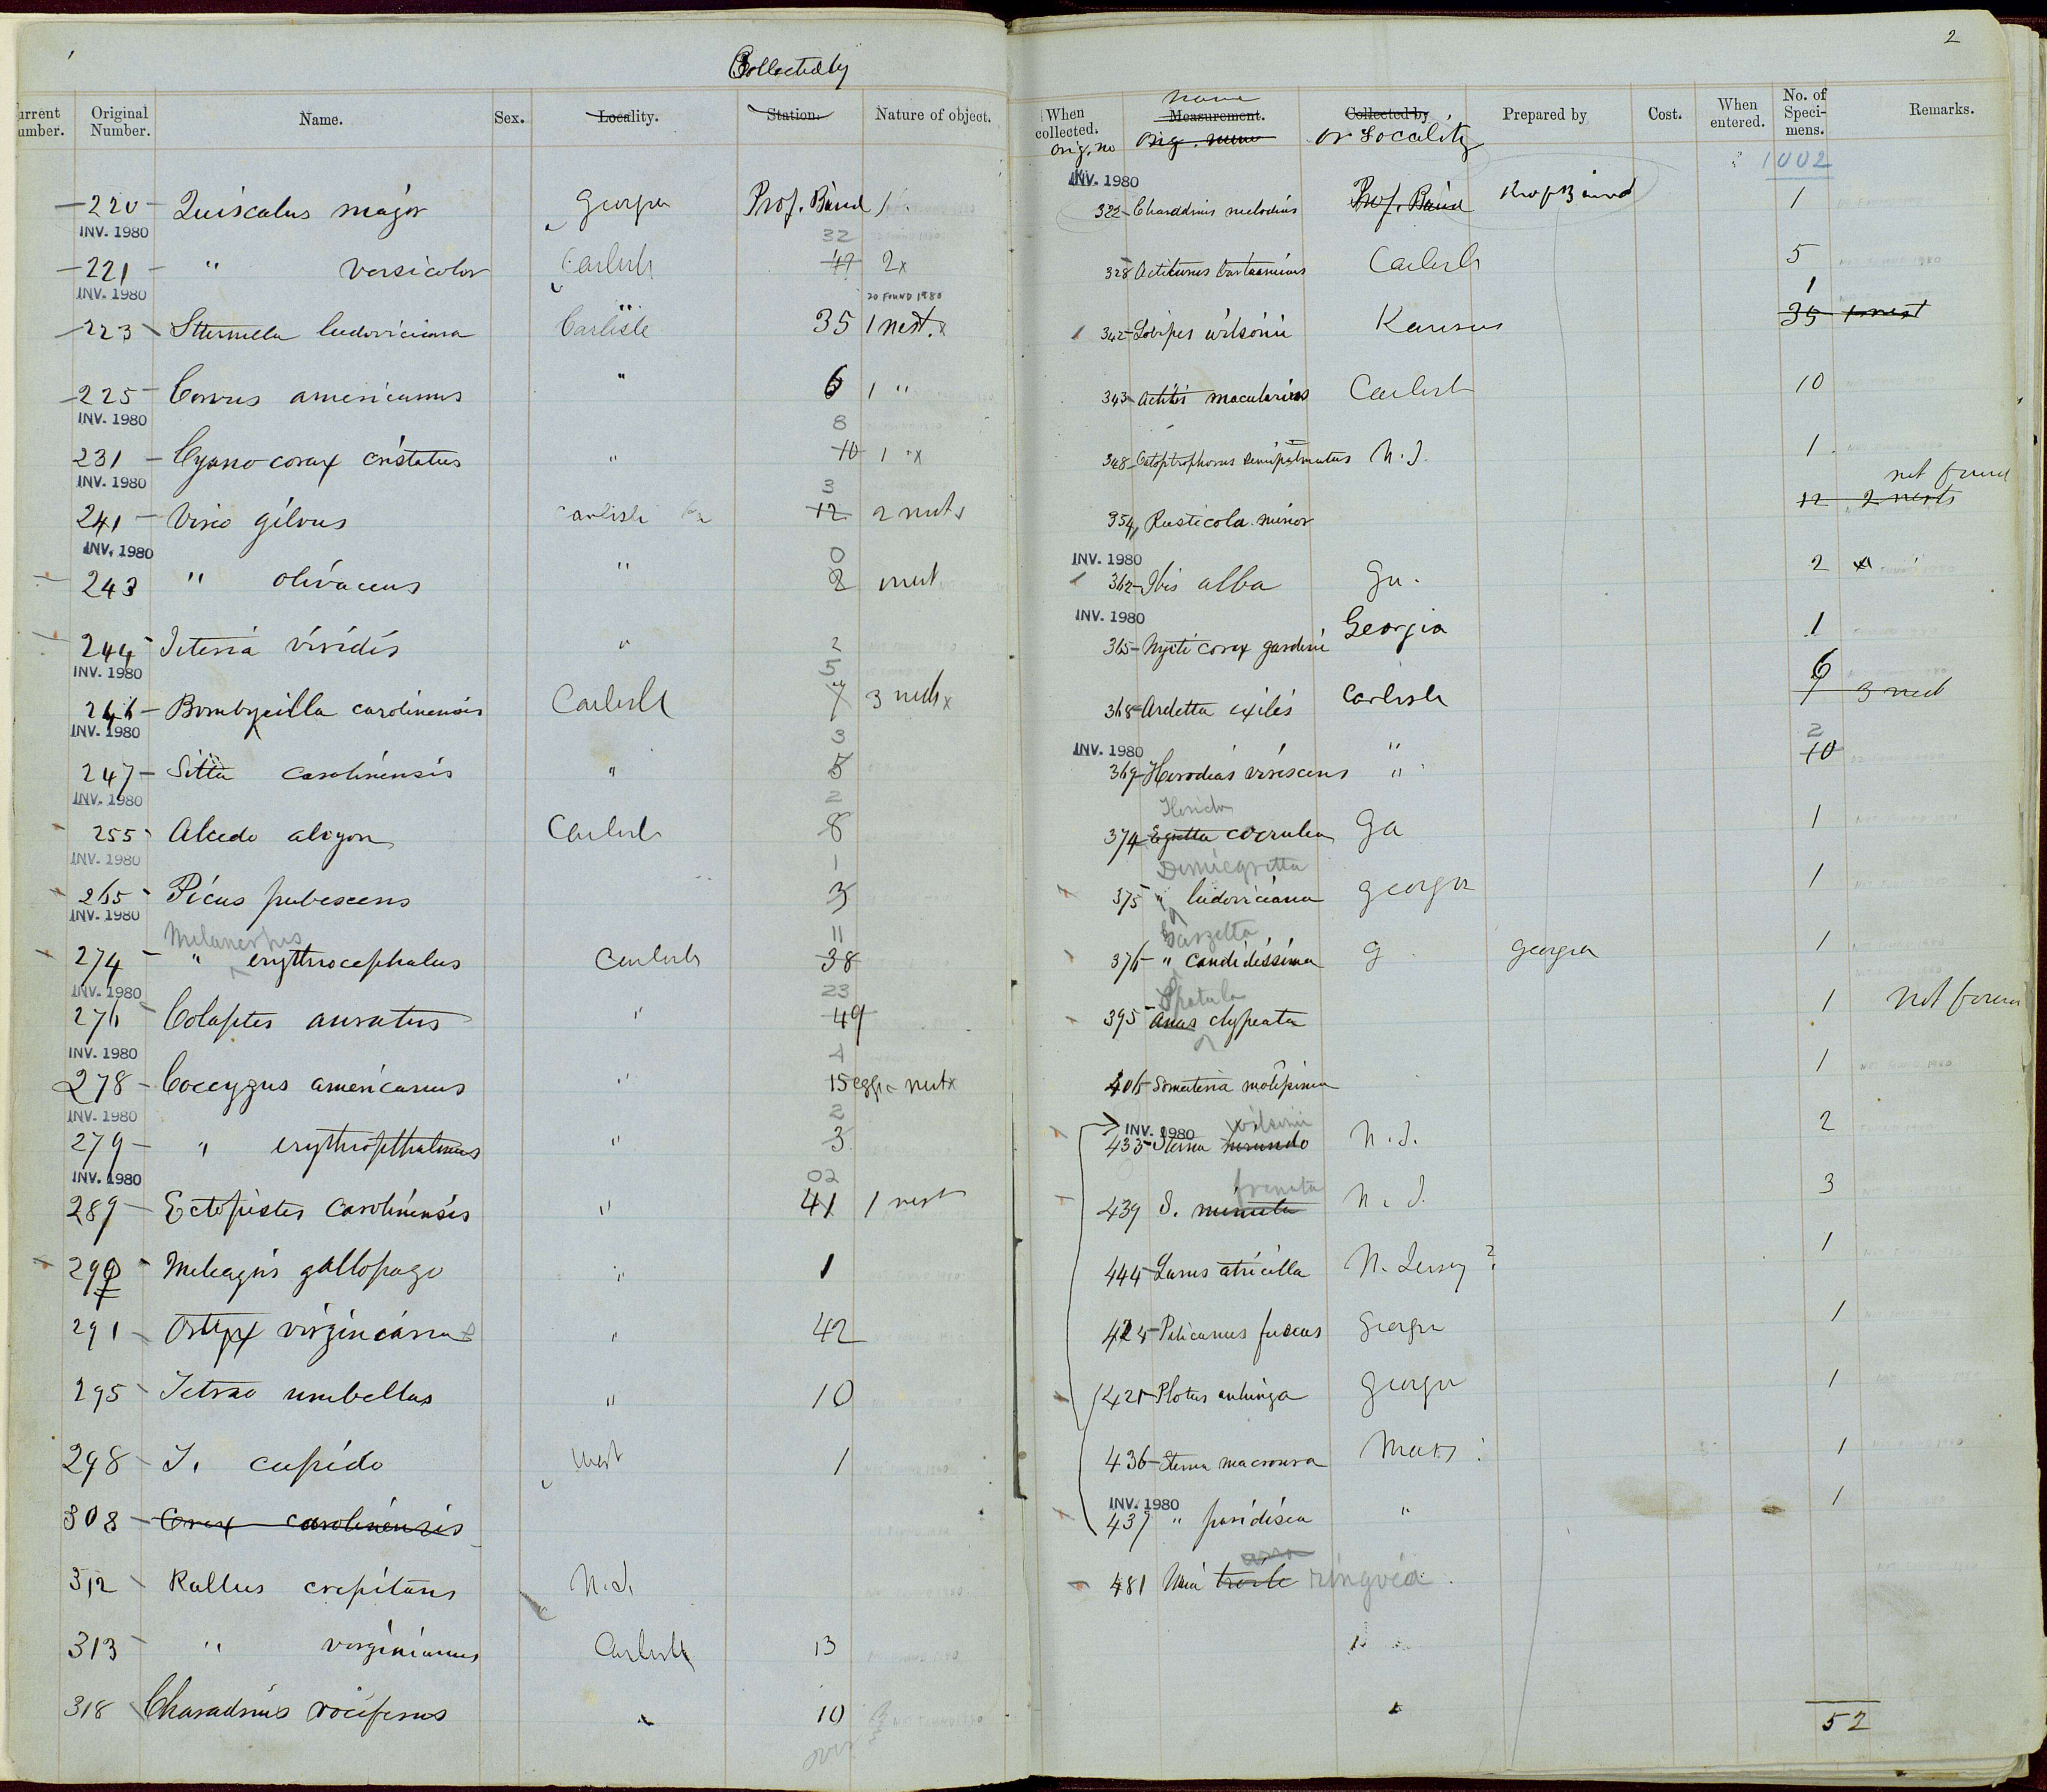 1
Collected by
Current Number. Original Number. Name. Sex. Locality. Station. Nature of object.
220 - Quiscalus major Georgia Prof. Baird 1
INV. 1980
32
221 - " versicolor Carlisle 47 2x
INV. 1980
20 FOUND 1980
223 Sturnella ludoviciana Carlisle 35 1 nest. x
225 - Corvus americanus " 6 1 "
INV. 1980
8
231 - Cyanocorax cristatus " 10 1 " x
INV. 1980
3
241 - Vireo gilvus Carlisle 12 2 nests
INV. 1980
0
243 " olivaceus " 2 nest
244 Icteria viridis " 2
INV. 1980
5
246 - Bombycilla carolinensis Carlisle 7 3 nests x
INV. 1980
3
247 - Sitta carolinensis " 5
INV. 1980
2
255 Alcedo alcyon Carlisle 8
INV. 1980
1
265 Picus pubescens 3
INV. 1980
Melanerpes 11
274 - " erythrocephalus Carlisle 38
INV. 1980
23
276 Colaptes auratus " 49
INV. 1980
4
278 - Coccygus americanus " 15 eggs - nest x
INV. 1980
2
279 - " erythropthalmus " 3
INV. 1980
02
289 - Ectopistes carolinensis " 41 1 nest
290 - Meleagris gallopago " 1
291 - Ortyx virginiana " 42
295 - Tetrao umbellus " 10
298 - T. cupido West 1
308 - Crex carolinensis
312 Rallus crepitans N.J.
313 " virginianus Carlisle 13
318 Charadrius vociferus " 10
over
2
When collected. Measurement. Collected by Prepared by Cost. When entered. No. of Specimens. Remarks.
name
orig. no orig. name or Locality
1002
INV. 1980
322 - Charadrius melodius Prof. Baird Prof Baird 1
328 Actiturus bartramius Carlisle 5
1
342 - Lobipes wilsonii Kansas 35 1 nest
343 - Actitis macularius Carlisle 10
348 - Catoptrophorus semipalmatus N.J. 1
not found
354 Rusticola minor 12 2 nests
INV. 1980
362 - Ibis alba Ga. 2
INV. 1980
365 - Nycticorax gardeni Georgia 1
6
368 - Ardetta exilis Carlisle 7 3 nest
INV. 1980 2
369 - Herodias virescens " 10
Florida
374 - Egretta coerulea Ga 1
Demiegretta
375 " ludoviciana Georgia 1
Garzetta
376 - " candidissima G Georgia 1
Spatula
395 - Anas clypeata 1 not found
406 - Somateria mollissima 1
INV. 1980 wilsonii
433 - Sterna hirundo N.J. 2
frenata
439 S. minuta N.J. 3
444 - Larus atricilla N. Jersey ? 1
424 - Pelicanus fuscus Georgia 1
421 - Plotus anhinga Georgia 1
436 - Sterna macroura Mass : 1
INV. 1980
437 " paridisea " 1
481 Uria troile ringvia
52